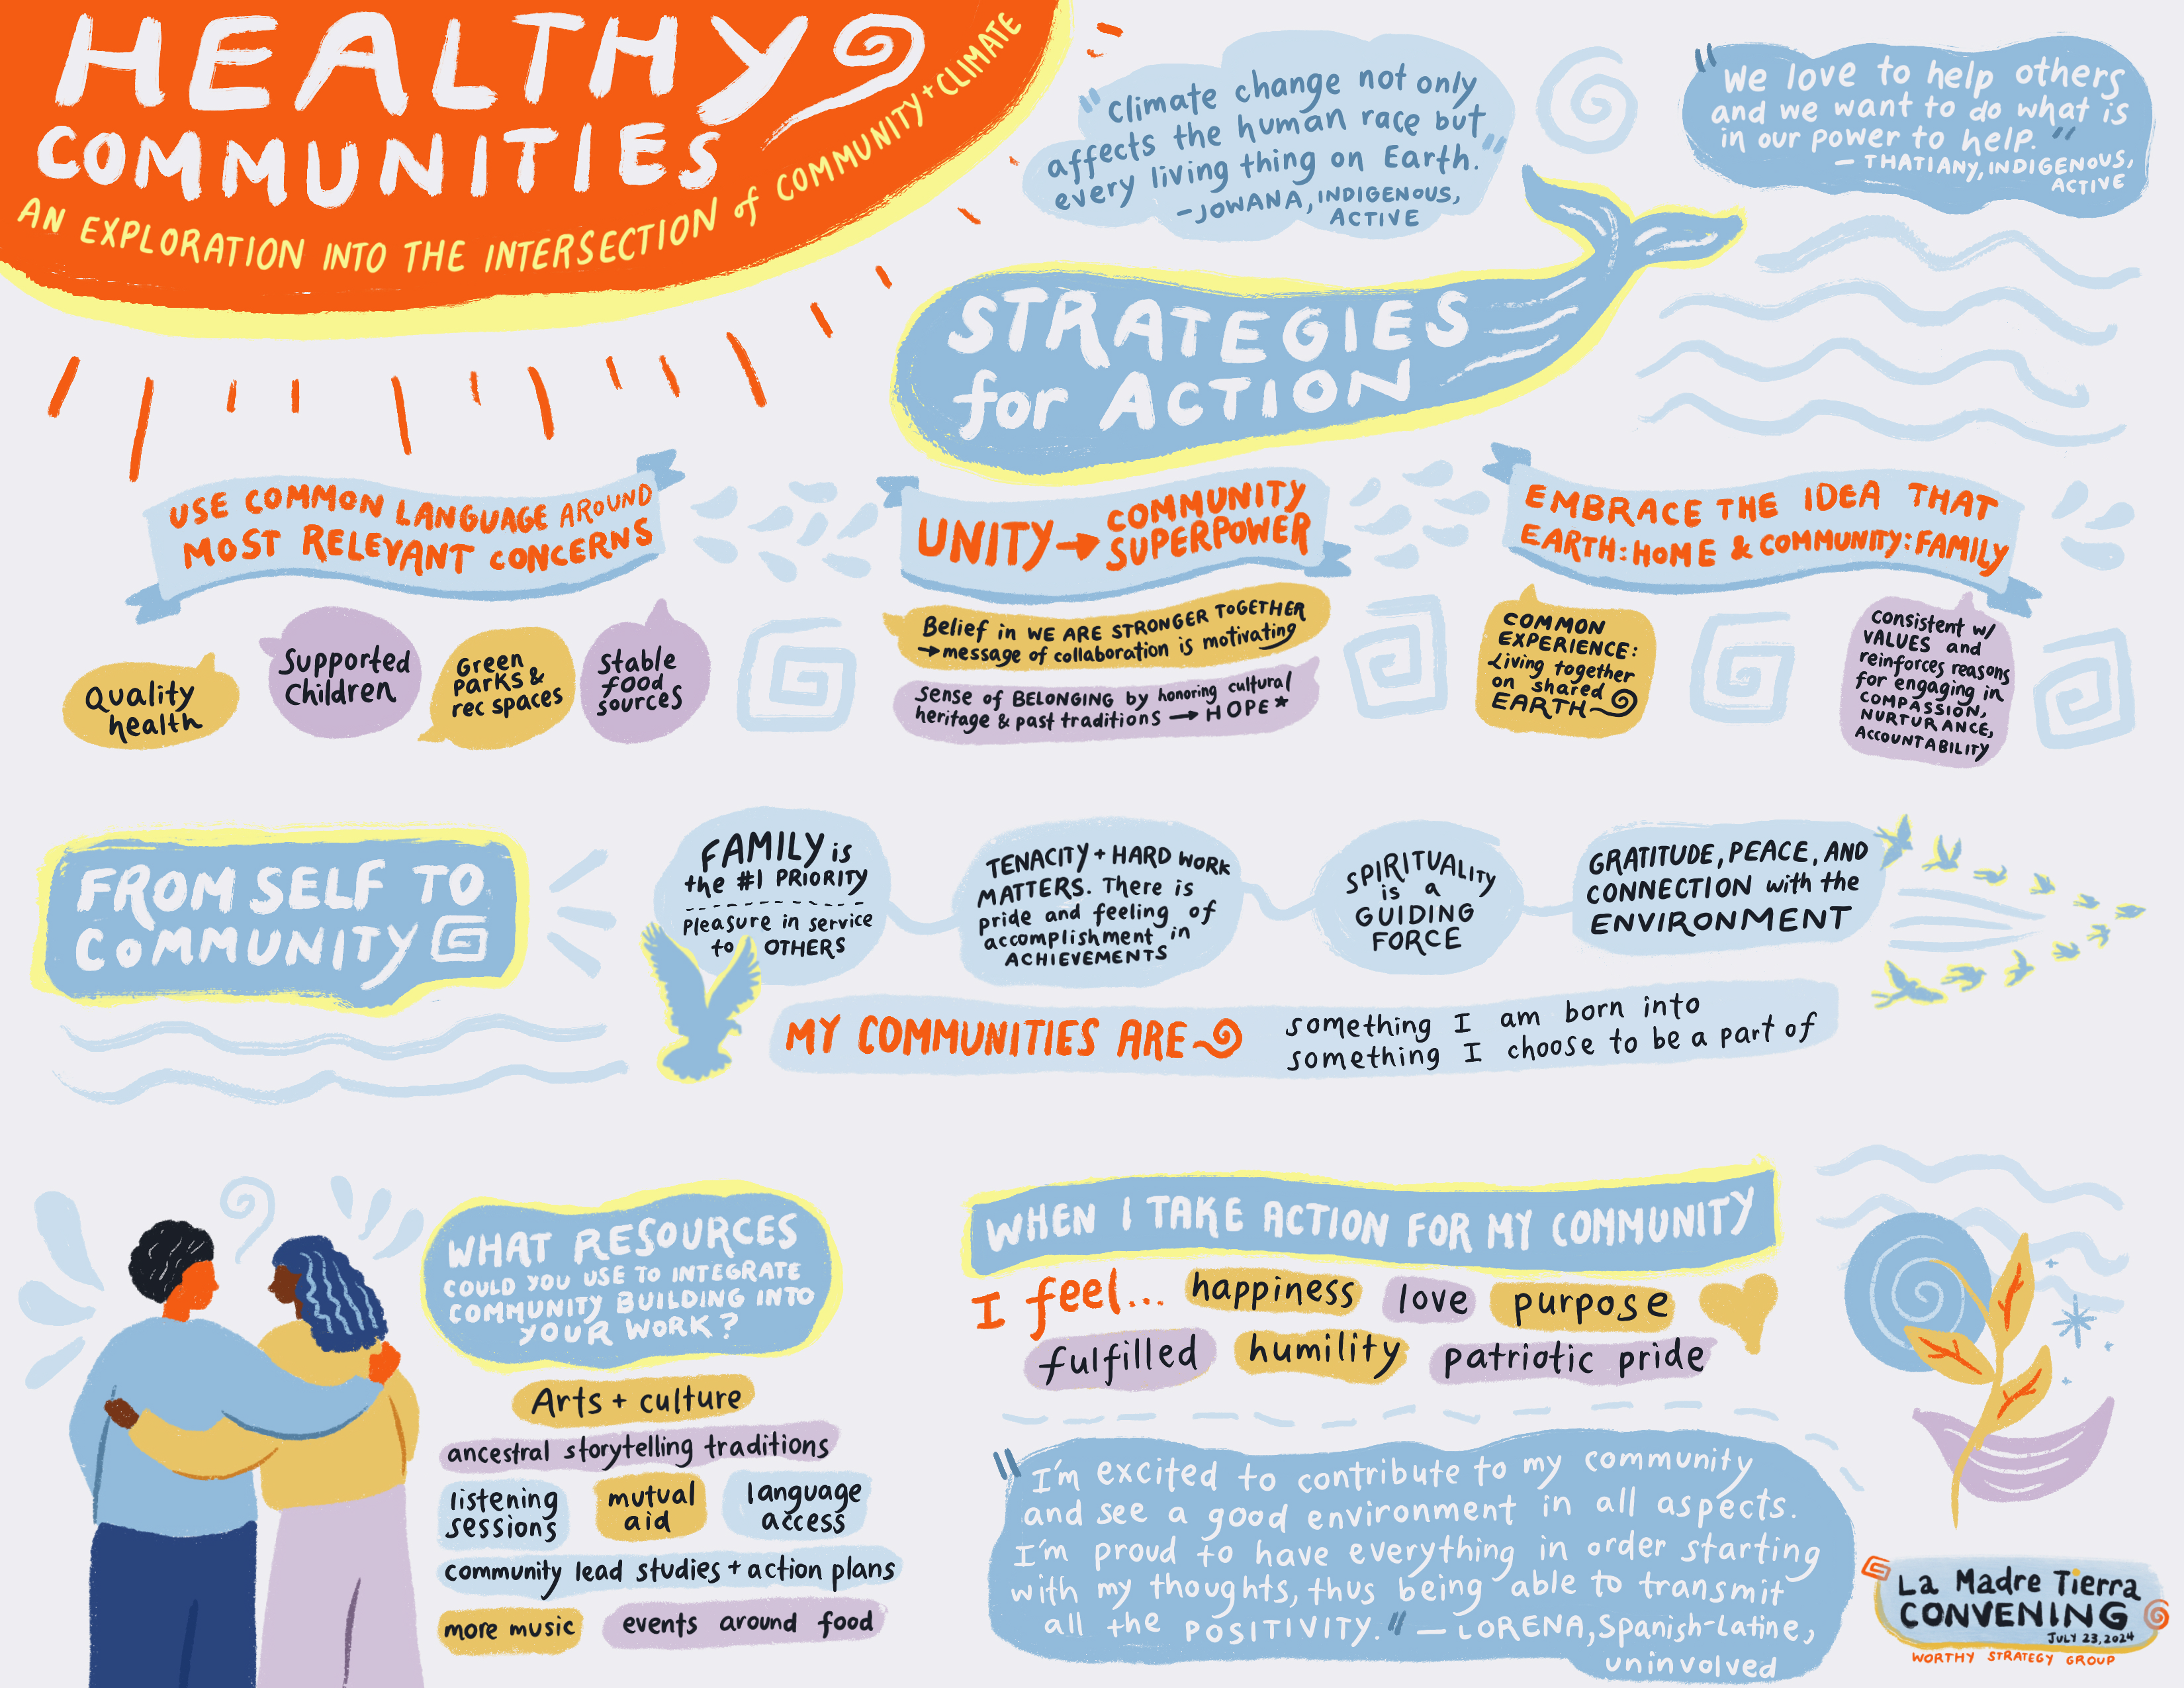 HEALTHY
COMMUNITIES
AN EXPLORATION INTO THE INTERSECTION of COMMUNITY + CLIMATE
"climate change not only
affects the human race but
every living thing on Earth."
- JOWANA, INDIGENOUS,
ACTIVE
"We love to help others
and we want to do what is
in our power to help."
- THATIANY, INDIGENOUS,
ACTIVE
STRATEGIES
for ACTION
USE COMMON LANGUAGE AROUND
MOST RELEVANT CONCERNS
Quality
health
Supported
Children
Green
parks &
rec spaces
Stable
food
sources
UNITY → COMMUNITY
SUPERPOWER
Belief in WE ARE STRONGER TOGETHER
→ message of collaboration is motivating
Sense of BELONGING by honoring cultural
heritage & past traditions → HOPE*
EMBRACE THE IDEA THAT
EARTH: HOME & COMMUNITY: FAMILY
COMMON
EXPERIENCE:
Living together
on shared
EARTH
Consistent w/
VALUES and
reinforces reasons
for engaging in
COMPASSION,
NURTURANCE,
ACCOUNTABILITY
FROM SELF TO
COMMUNITY
FAMILY is
the #1 PRIORITY
Pleasure in service
to OTHERS
TENACITY + HARD WORK
MATTERS. There is
pride and feeling of
accomplishment in
ACHIEVEMENTS
SPIRITUALITY
is a
GUIDING
FORCE
GRATITUDE, PEACE, AND
CONNECTION with the
ENVIRONMENT
MY COMMUNITIES ARE
something I am born into
something I choose to be a part of
WHAT RESOURCES
COULD YOU USE TO INTEGRATE
COMMUNITY BUILDING INTO
YOUR WORK?
Arts + culture
ancestral storytelling traditions
listening
sessions
mutual
aid
language
access
community lead studies + action plans
more music
events around food
WHEN I TAKE ACTION FOR MY COMMUNITY
I feel... happiness love purpose
fulfilled humility patriotic pride
"I'm excited to contribute to my community
and see a good environment in all aspects.
I'm proud to have everything in order starting
with my thoughts, thus being able to transmit
all the POSITIVITY." - LORENA, Spanish-Latine,
uninvolved
La Madre Tierra
CONVENING
JULY 23, 2024
WORTHY STRATEGY GROUP